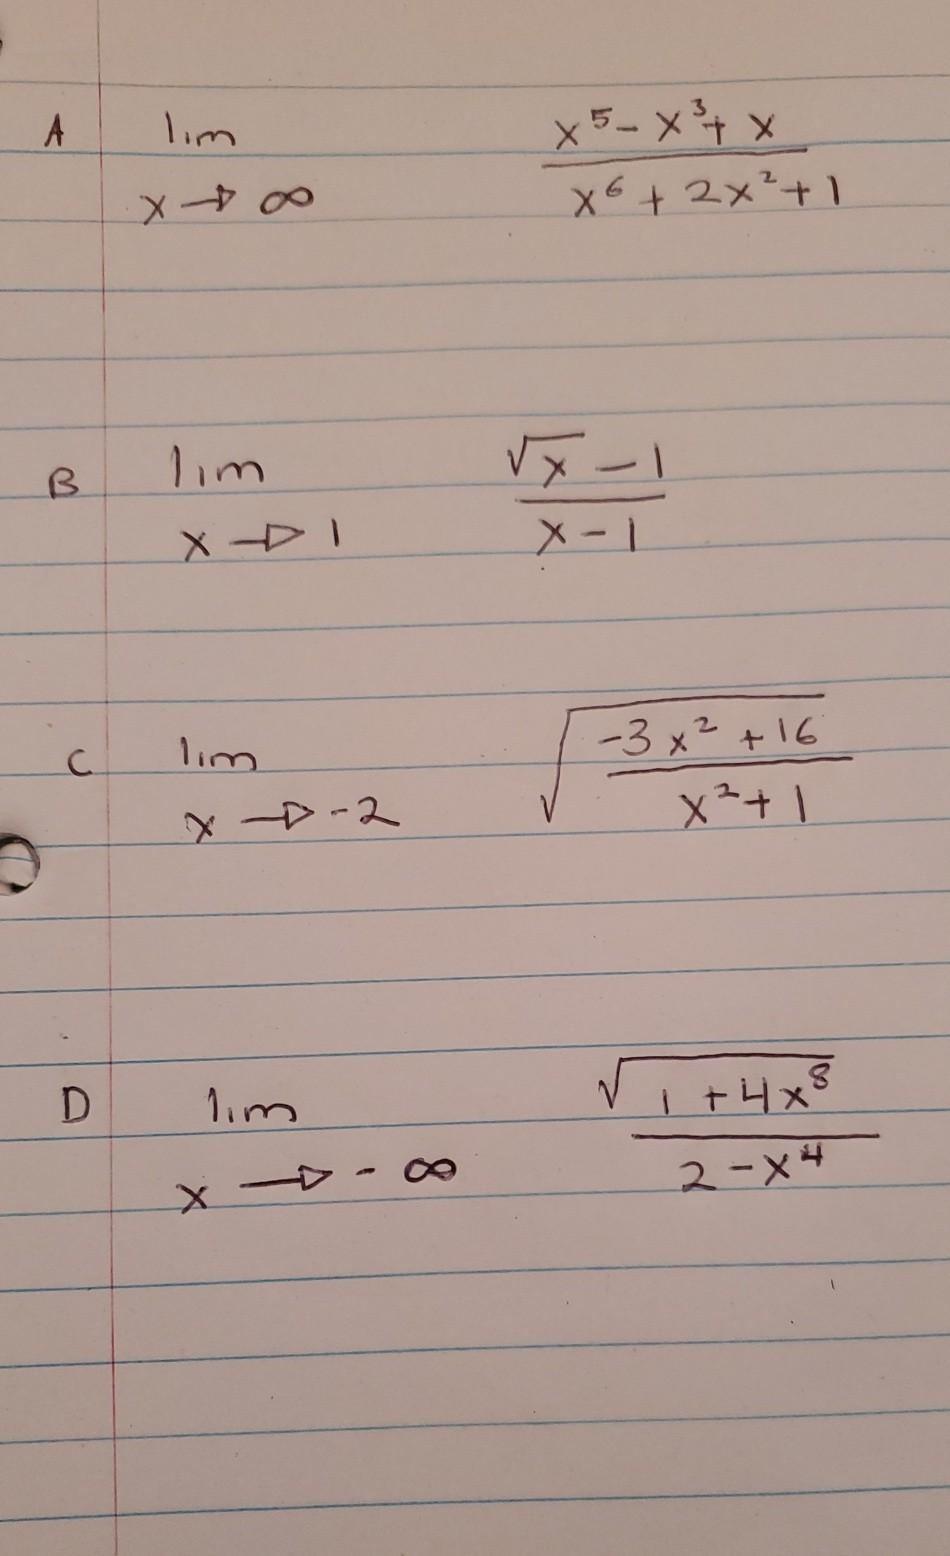 A lim x→∞ (x⁵ - x³ + x)/(x⁶ + 2x² + 1)
B lim x→1 (√x - 1)/(x - 1)
C lim x→-2 √((-3x² + 16)/(x² + 1))
D lim x→-∞ √(1 + 4x⁸)/(2 - x⁴)